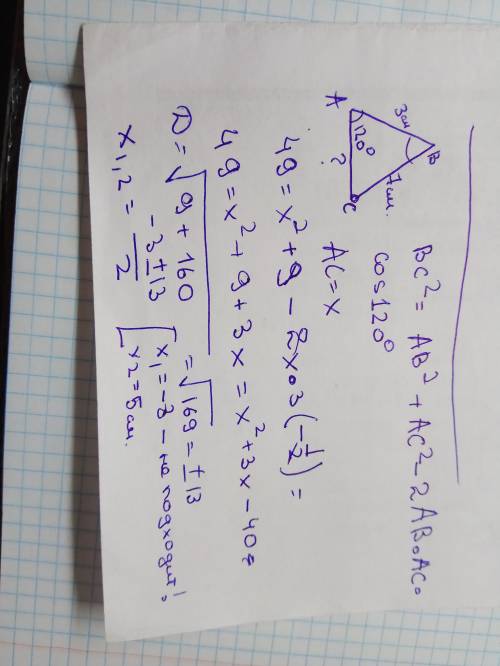 BC² = AB² + AC² - 2AB•AC•
cos 120°
B
3см
7см.
A
120°
?
C
AC = x
49 = x² + 9 - 2x•3(-1/2) =
49 = x² + 9 + 3x = x² + 3x - 40 =
D = √9 + 160 = √169 = ±13
x1,2 = -3 ± 13 / 2 [ x1 = -8 - не подходит!
x2 = 5 см.